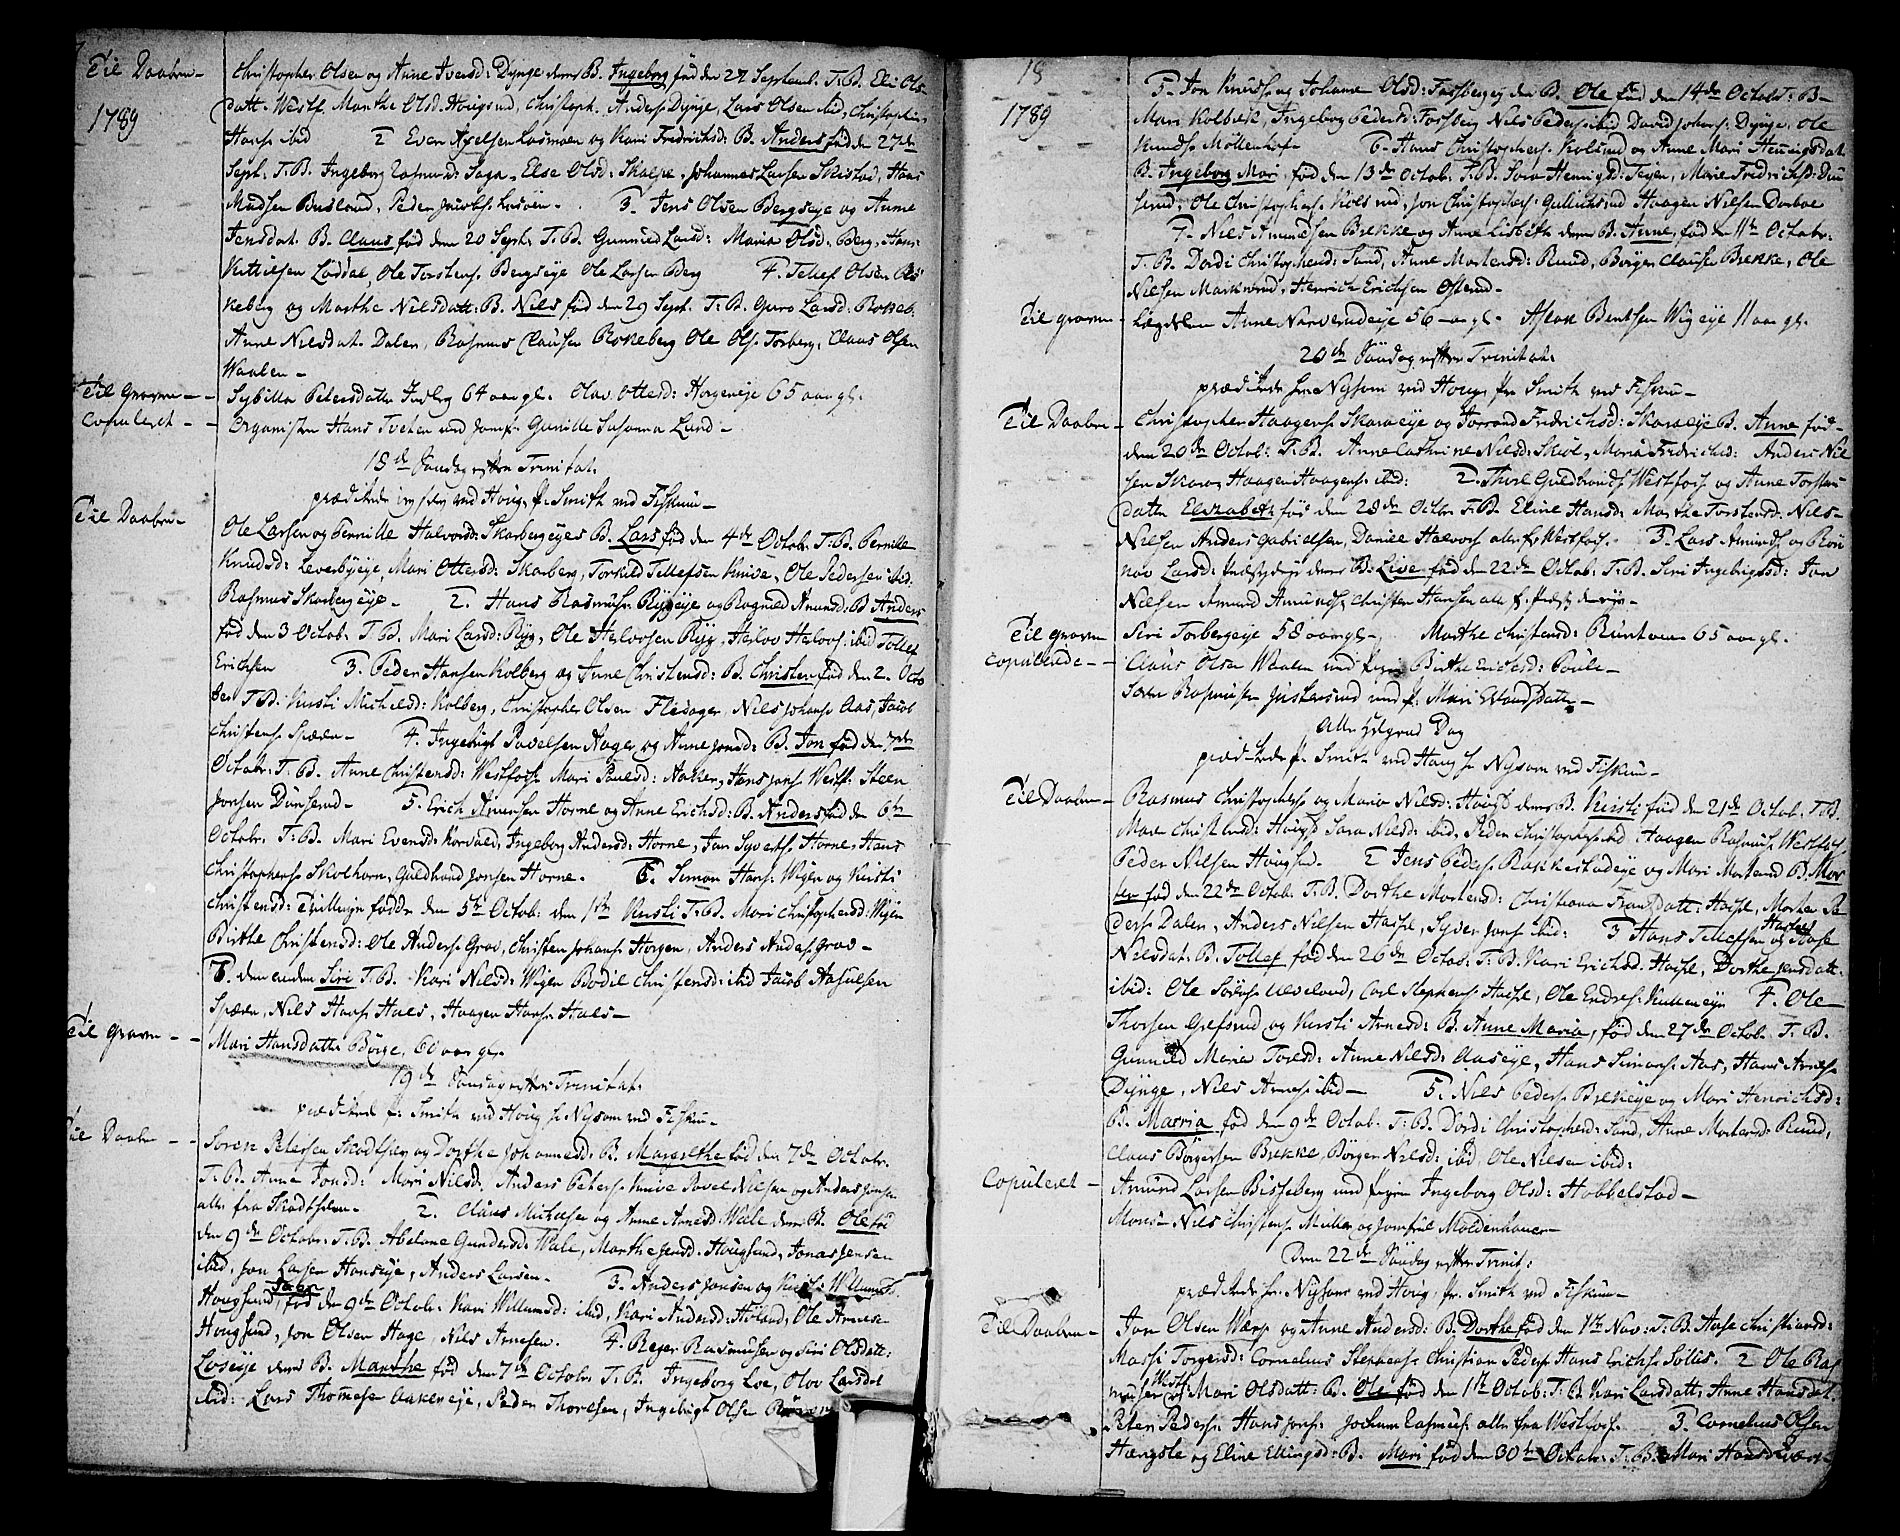 Til Daaben
1789
Christopher Olsen og Anne Iversd: Dynge deres B. Ingeborg fød den 27 Septemb. T.B. Eli Ols
datt. Westf. Marthe Olsd. Hougsund, Christoph. Anders. Dynge, Lars Olsen ibid, Christopher
Hans. ibid 2 Even Axelsen Lasmoen og Kari Fredrichsd: B. Anders fød den 27de
Sept. T.B. Ingeborg Rasmusd: Saga, Else Olsd: Skalpe, Johannes Larsen Skistad, Hans
Madsen Busland, Peder Jacobs. 3. Jens Olsen Bergseye og Anne
Jensdat. B. Claus fød den 20 Sept. T.B. Gunnild Larsd: Maria Olsd: Berg, Hans
Kittilsen Løddal, Ole Torstens. Bergseye Ole Larsen Berg 4. Tellef Olsen Ro
keberg og Marthe Nilsdatt: B. Nils fød den 29 Sept. T.B. Guro Larsd: Rokeb.
Anne Nilsdat. Dalen, Rasmus Clausen Rokeberg Ole Ols. Torberg, Claus Olsen
Waalen
Til graven
Sybilla Petersdatter 64 aar gl. Olav Ottersd: Horgeneye 65 aar gl.
Copuleret
Organisten Hans Tveten med Jomf. Gunilde Susanna Lund
18de Søndag efter Trinitat.
prædikede ved Houg, hr. Smith ved Fiskum
Til Daaben
Ole Larsen og Pernille Halvorsd: Skarbergeyes B. Lars fød den 4de Octob. T.B. Pernille
Knudsd: Leverbyeye, Mari Ottersd: Skarberg, Torkild Tellefsen Knive, Ole Pedersen ibid.
Rasmus Skarbergeye 2. Hans Rasmus. Rygeye og Ragnild Amunsd: B. Anders
fød den 3 Octob. T.B. Mari Larsd: Ryg, Ole Halvorsen Ryg, Halvor Halvors. ibid Tollef
Erichsen 3. Peder Hansen Kolberg og Anne Christensd: B. Christen fød den 2. Octo
ber T.B. Kirsti Michelsd: Kolberg, Christopher Olsen Fledager, Nils Johans. Aas, Jacob
Christens. Spæren 4. Ingebrigt Povelsen Aager og Anne Jonsd: B. Jon fød den 7de
Octobr. T.B. Anne Christensd: Westfos. Mari Paulsd: Aaker, Hans Jons. Westf. Steen
Jonsen Dunserud 5. Erich Amunsen Horne og Anne Erichsd: B. Anders fød den 6te
Octobr. T.B. Mari Evensd: Korvald, Ingeborg Andersd: Horne, Jon Syvers. Horne, Hans
Christophers. Skolhorn, Guldbrand Jonsen Horne. 6. Simon Hans. Wigen og Kirsti
Christensd: Tvillinger fødde den 5te Octob: den 1ste Kirsti T.B. Mari Christophersd: Wigen
Birthe Christensd: Ole Anders. Grav, Christen Johans. Horgen, Anders Anders. Grav
7. den anden Siri T.B. Kari Nilsd: Wigen Bodil Christensd: ibid Jacob Aasulsen
Spæren, Nils Hans. Haes, Haagen Hans. Haes
Til graven
Mari Hansdatter Børge, 60 aar gl.
19de Søndag efter Trinitat:
prædikede hr. Smith ved Houg hr. Nysom ved Fiskum
Til Daaben
Søren Petersen og Dorthe Johannesd: B. Margrethe fød den 7de Octobr.
T.B. Anne Jonsd: Mari Nilsd. Anders Peters. Knive Povel Nilsen og Anders Jonsen
alle fra 2. Claus Michelsen og Anne Arnesd Wale deres B. Ole fød
den 9de Octobr. T.B. Abelone Gundersd: Wale, Marthe Jensd: Hougsund, Jonas Jensen
ibid, Jon Larsen Hanseye, Anders Larsen 3. Anders Jonsen og Kirsti Willumsd.
Hougsund, fød den 9de Octobr. Kari Willumsd: ibid, Kari Andersd: Høland, Ole Arnesen
Hougsund, Jon Olsen Hage, Nils Arnesen. 4. Reyer Rasmusen og Siri Olsdatt:
Loseye deres B. Marthe fød den 7de Octobr. T.B. Ingeborg Loe, Olov Larsdat
ibid: Lars Thomesen Aakereye, Peder Thoresen, Ingebrigt Olsen
18
1789
5. Jon Knuds. og Johane Olsd: Fossbergey den B. Ole fød den 14de Octobr T: B
Mari Kolbek, Ingeborg Pedersd: Forsberg Nils Peders. ibid David Johans. Dynge, Ole
Knuds. Møllenhof 6. Hans Christophers. Kolsrud og Anne Mari Henrigsdat
B. Ingeborg Mari, fød den 13de Octob. T.B. Sara Henrigsd: Teyen, Marie Fredrichsd: Dun
serud, Ole Christophers. Kolsrud, Jon Christophers. Gulliksrud Haagen Nilsen Dorboe
7. Nils Amundsen Brekke og Anne Lisbeth deres B. Anne, fød den 11te Octobr.
T.B. Dordi Christophersd: Sand, Anne Mortensd: Ruud, Børger Claus. Brekke, Ole
Nilsen Markerud, Henrich Erichsen Ofterud
Til graven
Lægdslem Anne Narverudeye 56 aar gl. Aslak Bentsen Wigeye 11 aar gl.
20de Søndag efter Trinitat:
prædikede hr. Nysom ved Houg, hr. Smith ved Fiskum
Til Daaben
Christopher Haagens. Skaraeye og Jorrand Fredrichsd: Skaraeye B. Anne fød
den 20de Octob: T.B. Anne Cathrine Nilsd: Skul, Maria Fredrichsd: Anders Nil
sen Skara, Haagen Haagens. ibid: 2. Thore Guldbrands. Westfos. og Anne Torsten
datter Elisabeth fød den 28de Octbr. T.B. Eline Hansd: Marthe Torstensd: Nils
Nilsen Anders Gabrielsen, Daniel Halvors. alle fr. Westfos. 3. Lars Amunds. og Røn
nov Larsd: deres B. Live fød den 22de Octob: T.B. Siri Ingebrigtsd: Jon
Nilsen Amund Amunds. Christen Hansen alle fr.
Til graven
Siri Torbergeye 58 aar gl. Marthe Christensd: Buntoen 65 aar gl.
Copulerede
Claus Olsen Waalen med pigen Birthe Erichsd: Poule
Soren Rasmusen Justersud med p. Mari Evansdatter
Alle Helgens Dag
prædikede hr. Smith ved Houg hr. Nysom ved Fiskum
Til Daaben
Rasmus Christophers. og Maria Nilsd: Hougs. deres B. Kirsti fød den 21de Octob. T.B.
Mari Christensd: Hougs. Sara Nilsd: ibid, Peder Christophers. ibid Haagen Rasmus. Westfos.
Peder Nilsen Hougsund. 2 Jens Peders. Bakkestadeye og Mari Mortensd B. Mor
ten fød den 22de Octob. T.B. Dorthe Mortensd: Christiana Fransdatt: Haeshl, Morten Pe
ders. Dalen, Anders Nilsen Haeshl, Syver Jons. ibid: 3 Hans Tellefsen og Aase
Nilsdat. B. Tollef fød den 26de Octob: T.B. Kari Erichsd: Haeshl, Dorthe Jensdatt.
ibid: Ole Sørens. Ulveland, Carl Stephens. Haeshl, Ole Endres. 4. Ole
Thorsen Grefsrud og Kirsti Arnesd: B. Anne Maria, fød den 27de Octob. T.B.
Gunnild Marie Toresd: Anne Nilsd: Aaseye, Hans Simons. Aas, Hans Arnes.
Dynge, Nils Arnes. ibid 5. Nils Peders. Brekeye og Mari Henrichsd:
B. Maria fød den 9de Octob. T.B. Dordi Christophersd: Sand, Anne Mortensd: Ruud,
Claus Børgersen Brekke, Børger Nilsd: ibid, Ole Nilsen ibid:
Copuleret
Amund Larsen Bisseberg med pigen Ingeborg Olsd: Hobbelstad
Mons. Nils Christens. Muller og Jomfrue Moldenhauer
Den 22de Søndag efter Trinit:
prædikede hr. Nysom ved Houg, hr. Smith ved Fiskum
Til Daaben
Jon Olsen Werp og Anne Andersd: B. Dorthe fød den 1te Nov: T.B. Aase Christiansd:
Massi Torgersd: Cornelius Stephens. Christian Peders. Hans Erichs. Solties. 2 Ole Ras
musen Westf. og Mari Olsdatt: B. Ole fød den 1te Octob: T.B. Kari Larsdatt: Anne Hansdat.
Peter Peders. Hans Jons. Jochum Rasmus. alle fra Westfos. 3. Cornelius Olsen
Hængsle og Eline Ellingsd: B. Mari fød den 30te Octobr: T.B. Mari Hansd: